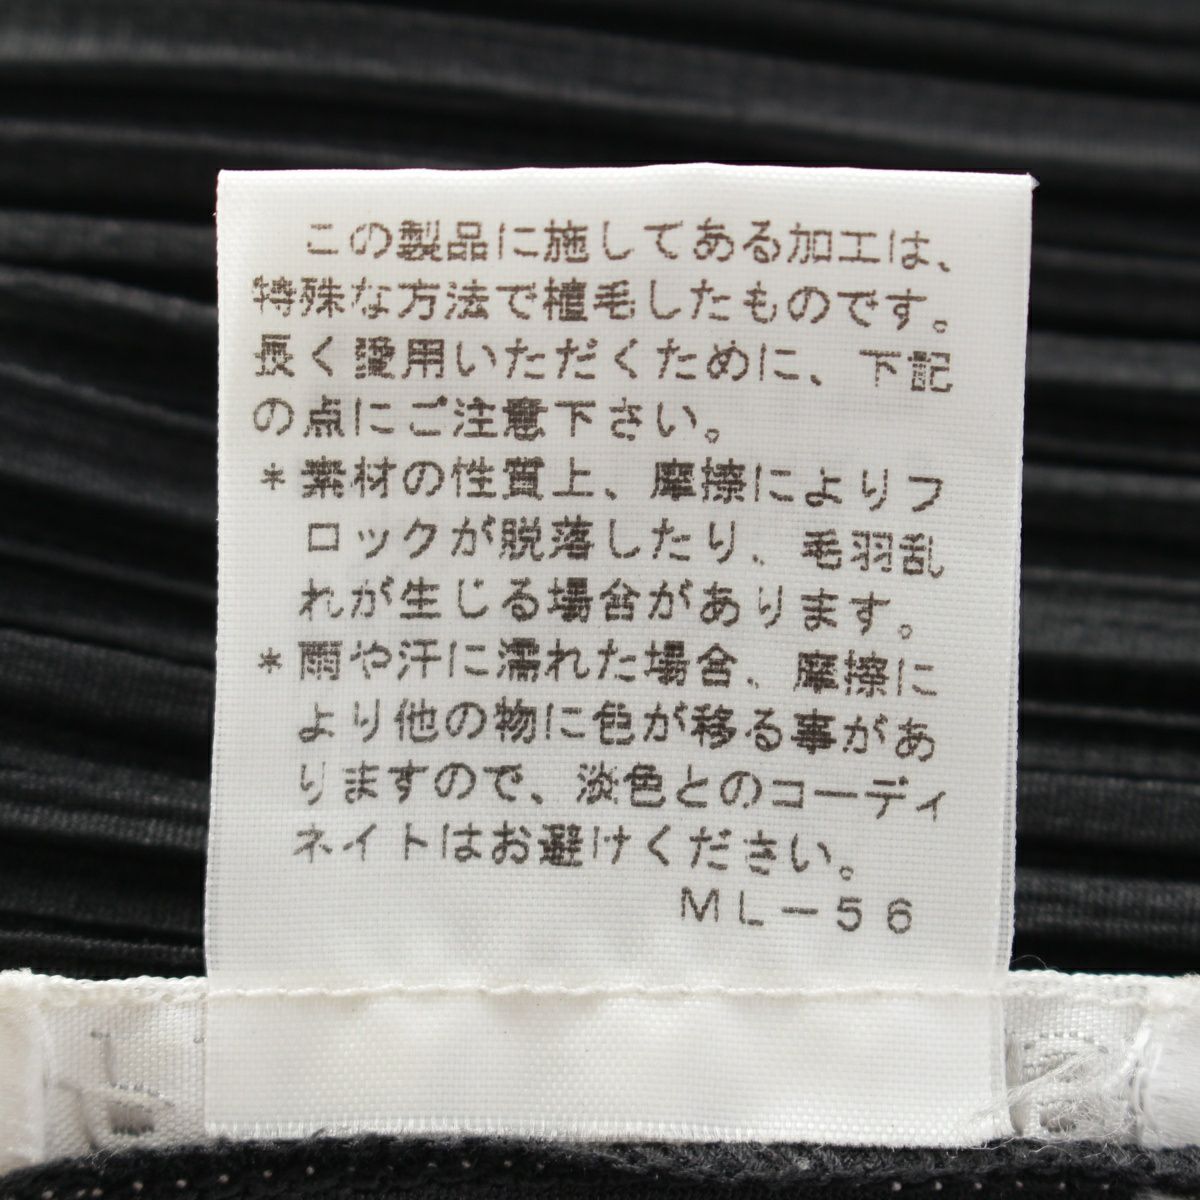 この製品に施してある加工は、
特殊な方法で植毛したものです。
長く愛用いただくために、下記
の点にご注意下さい。
＊素材の性質上、摩擦によりフ
ロックが脱落したり、毛羽乱
れが生じる場合があります。
＊雨や汗に濡れた場合、摩擦に
より他の物に色が移る事があ
りますので、淡色とのコーディ
ネイトはお避けください。
ＭＬ－５６